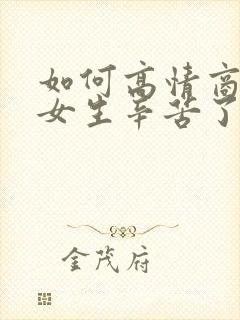 如何高情商
女生辛苦了
金茂府